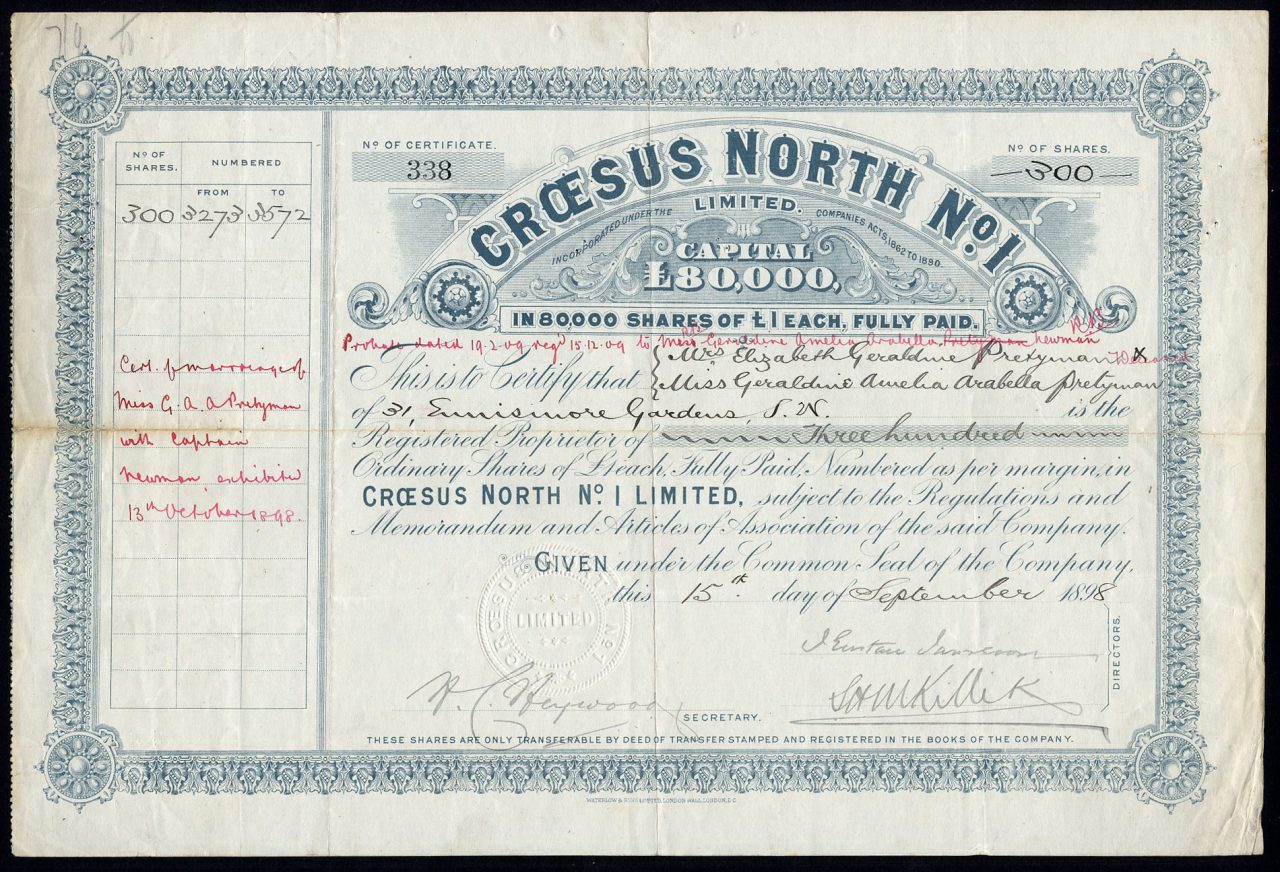 Nº OF CERTIFICATE.
338
Nº OF SHARES.
300
CRŒSUS NORTH Nº 1
LIMITED.
INCORPORATED UNDER THE COMPANIES ACTS, 1862 TO 1890.
CAPITAL
£80,000,
IN 80,000 SHARES OF £1 EACH, FULLY PAID.
Nº OF SHARES.
NUMBERED
FROM TO
300 3273 3572
Cert. of marriage of
Miss G. A. A Pretyman
with Captain
Newman exhibited
13th October 1898.
Probate dated 19.2.09 regd 15.12.09 to Mrs Geraldine Amelia Arabella Pretyman Newman
Mrs Elizabeth Geraldine Pretyman x Deceased
This is to Certify that
Miss Geraldine Amelia Arabella Pretyman
of 31, Ennismore Gardens, S. W. is the
Registered Proprietor of Three hundred
Ordinary Shares of £1 each, Fully Paid, Numbered as per margin, in
CRŒSUS NORTH Nº 1 LIMITED, subject to the Regulations and
Memorandum and Articles of Association of the said Company.
GIVEN under the Common Seal of the Company,
this 15th day of September 1898
CRŒSUS NORTH Nº 1
LIMITED
DIRECTORS.
H. C. Heywood
SECRETARY.
THESE SHARES ARE ONLY TRANSFERABLE BY DEED OF TRANSFER STAMPED AND REGISTERED IN THE BOOKS OF THE COMPANY.
WATERLOW & SONS LIMITED, LONDON WALL, LONDON, E.C.